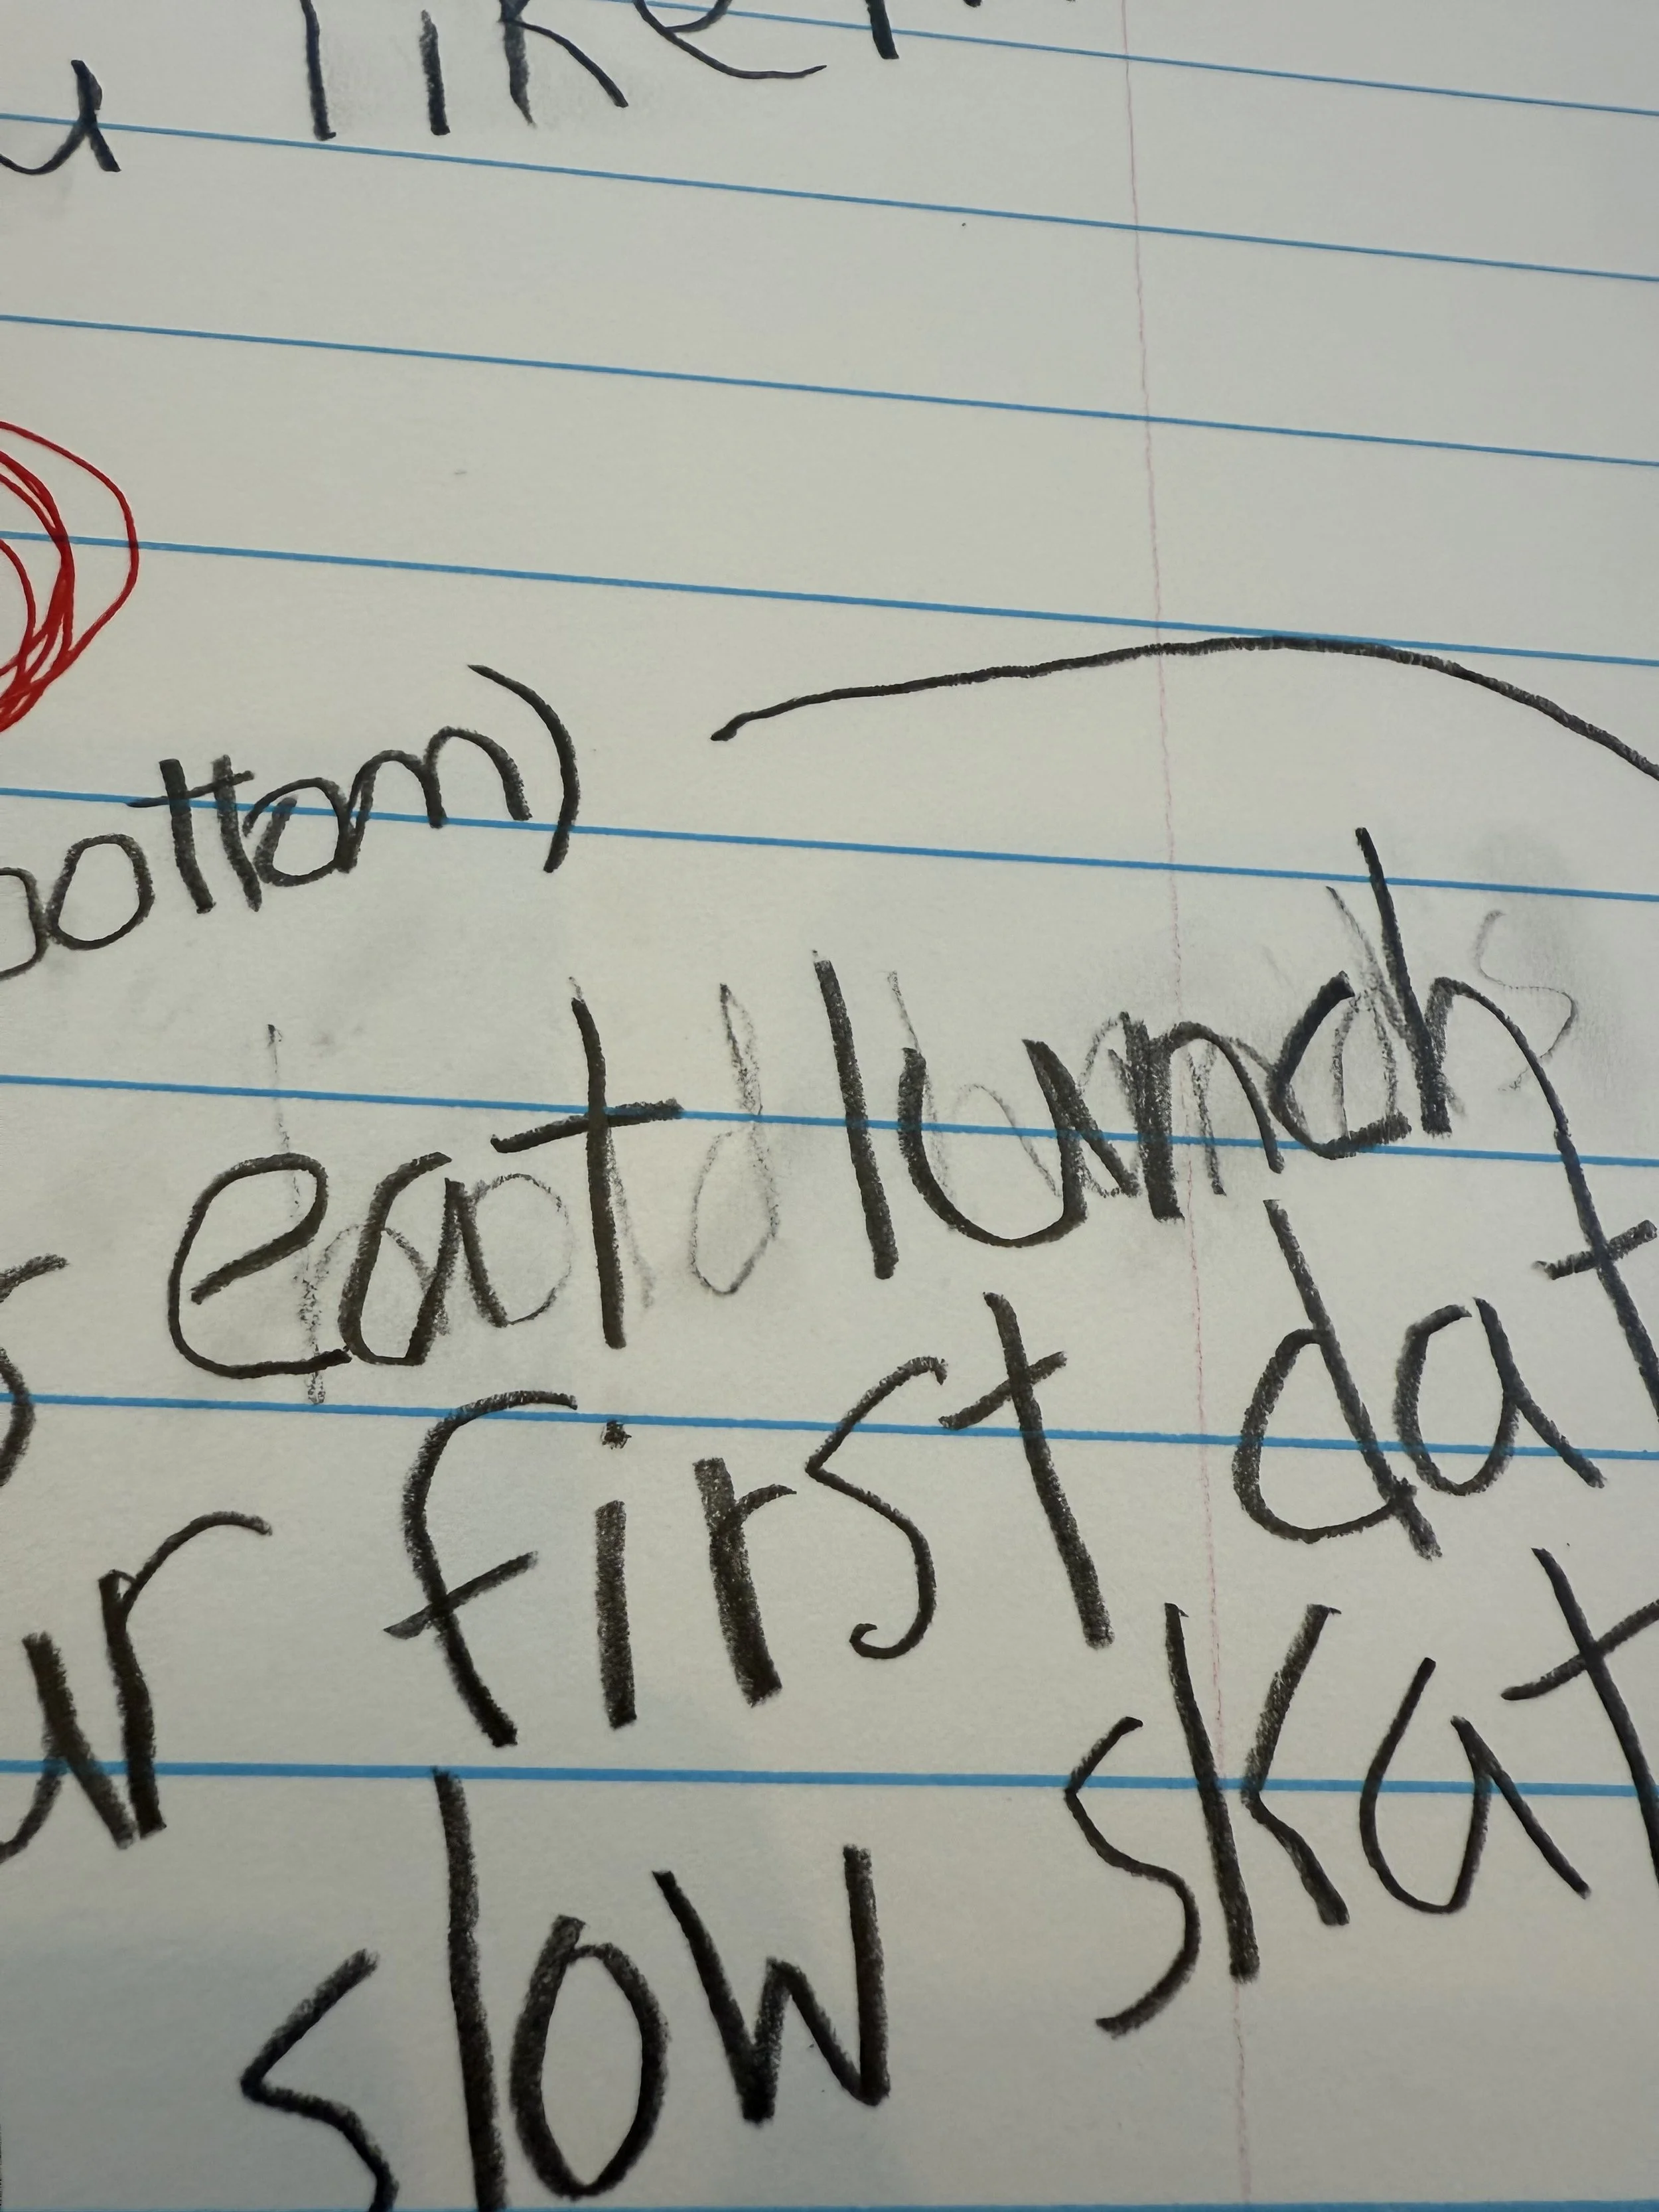 like
ottom)
eat lunch
first dat
slow skat